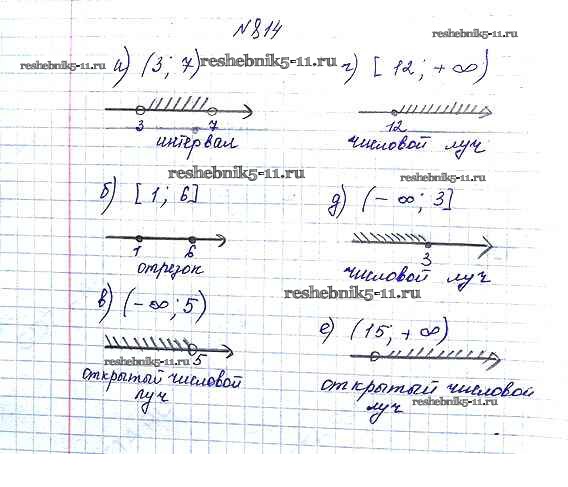 №814
reshebnik5-11.ru
reshebnik5-11.ru
а) (3; 7)
reshebnik5-11.ru
г) [12; +∞)
3 7
интервал
12
числовой луч
reshebnik5-11.ru
reshebnik5-11.ru
б) [1; 6]
д) (-∞; 3]
1 6
отрезок
3
числовой луч
reshebnik5-11.ru
в) (-∞; 5)
е) (15; +∞)
5
reshebnik5-11.ru
открытый числовой
луч
открытый числовой
луч
reshebnik5-11.ru